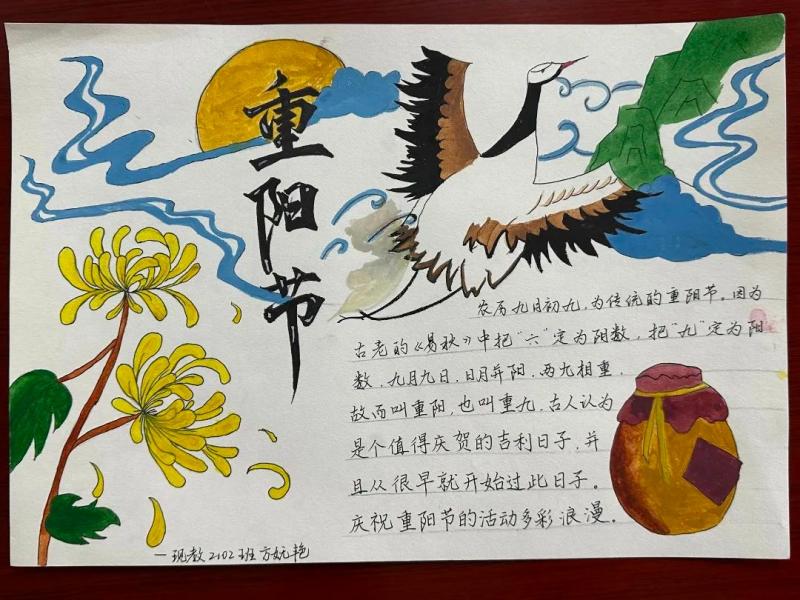 重阳节
农历九月初九，为传统的重阳节。因为
古老的《易秋》中把“六”定为阳数，把“九”定为阳
数，九月九日，日月并阳，两九相重，
故而叫重阳，也叫重九，古人认为
是个值得庆贺的吉利日子，并
且从很早就开始过此日子。
庆祝重阳节的活动多彩浪漫。
—现教2102班 方 艳